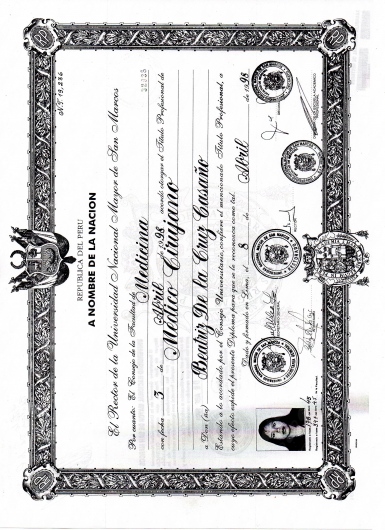 Nº T. 19,286
REPUBLICA DEL PERU
A NOMBRE DE LA NACION
El Rector de la Universidad Nacional Mayor de San Marcos
Por cuanto: El Consejo de la Facultad de Medicina
con fecha 3 de Abril de 1998, acordó otorgar el Título Profesional de
Médico Cirujano
a Don (ña) Beatriz De la Cruz Casaño
Estando a lo acordado por el Consejo Universitario, confiere el mencionado Título Profesional, a
cuyo efecto expide el presente Diploma para que se le reconozca como tal.
Dado y firmado en Lima, el 8 de Abril de 1998